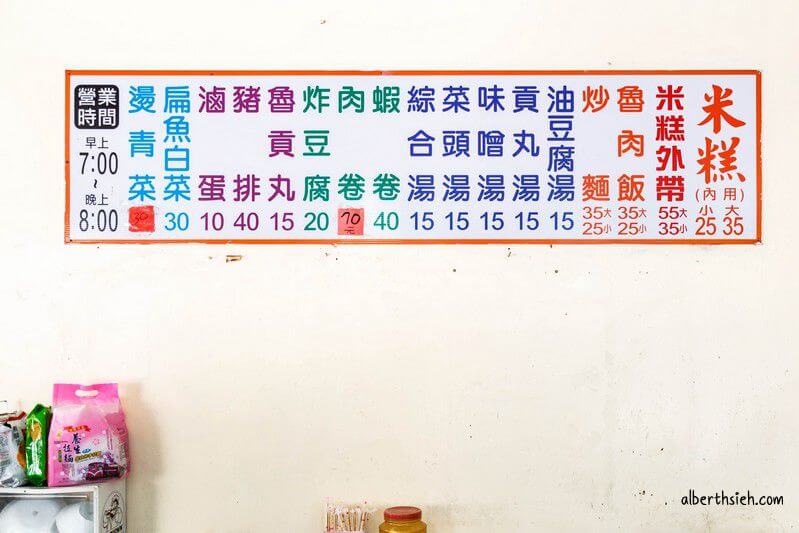 米糕
(內用)
小 大
25 35
米糕外帶
55大
35小
魯肉飯
35大
25小
炒麵
35大
25小
油豆腐湯
15
貢丸湯
15
味噌湯
15
菜頭湯
15
綜合湯
15
蝦卷
40
肉卷
70元
炸豆腐
20
魯貢丸
15
豬排
40
滷蛋
10
扁魚白菜
30
燙青菜
30
營業時間
早上
7:00
~
晚上
8:00
養生
拉麵
alberthsieh.com